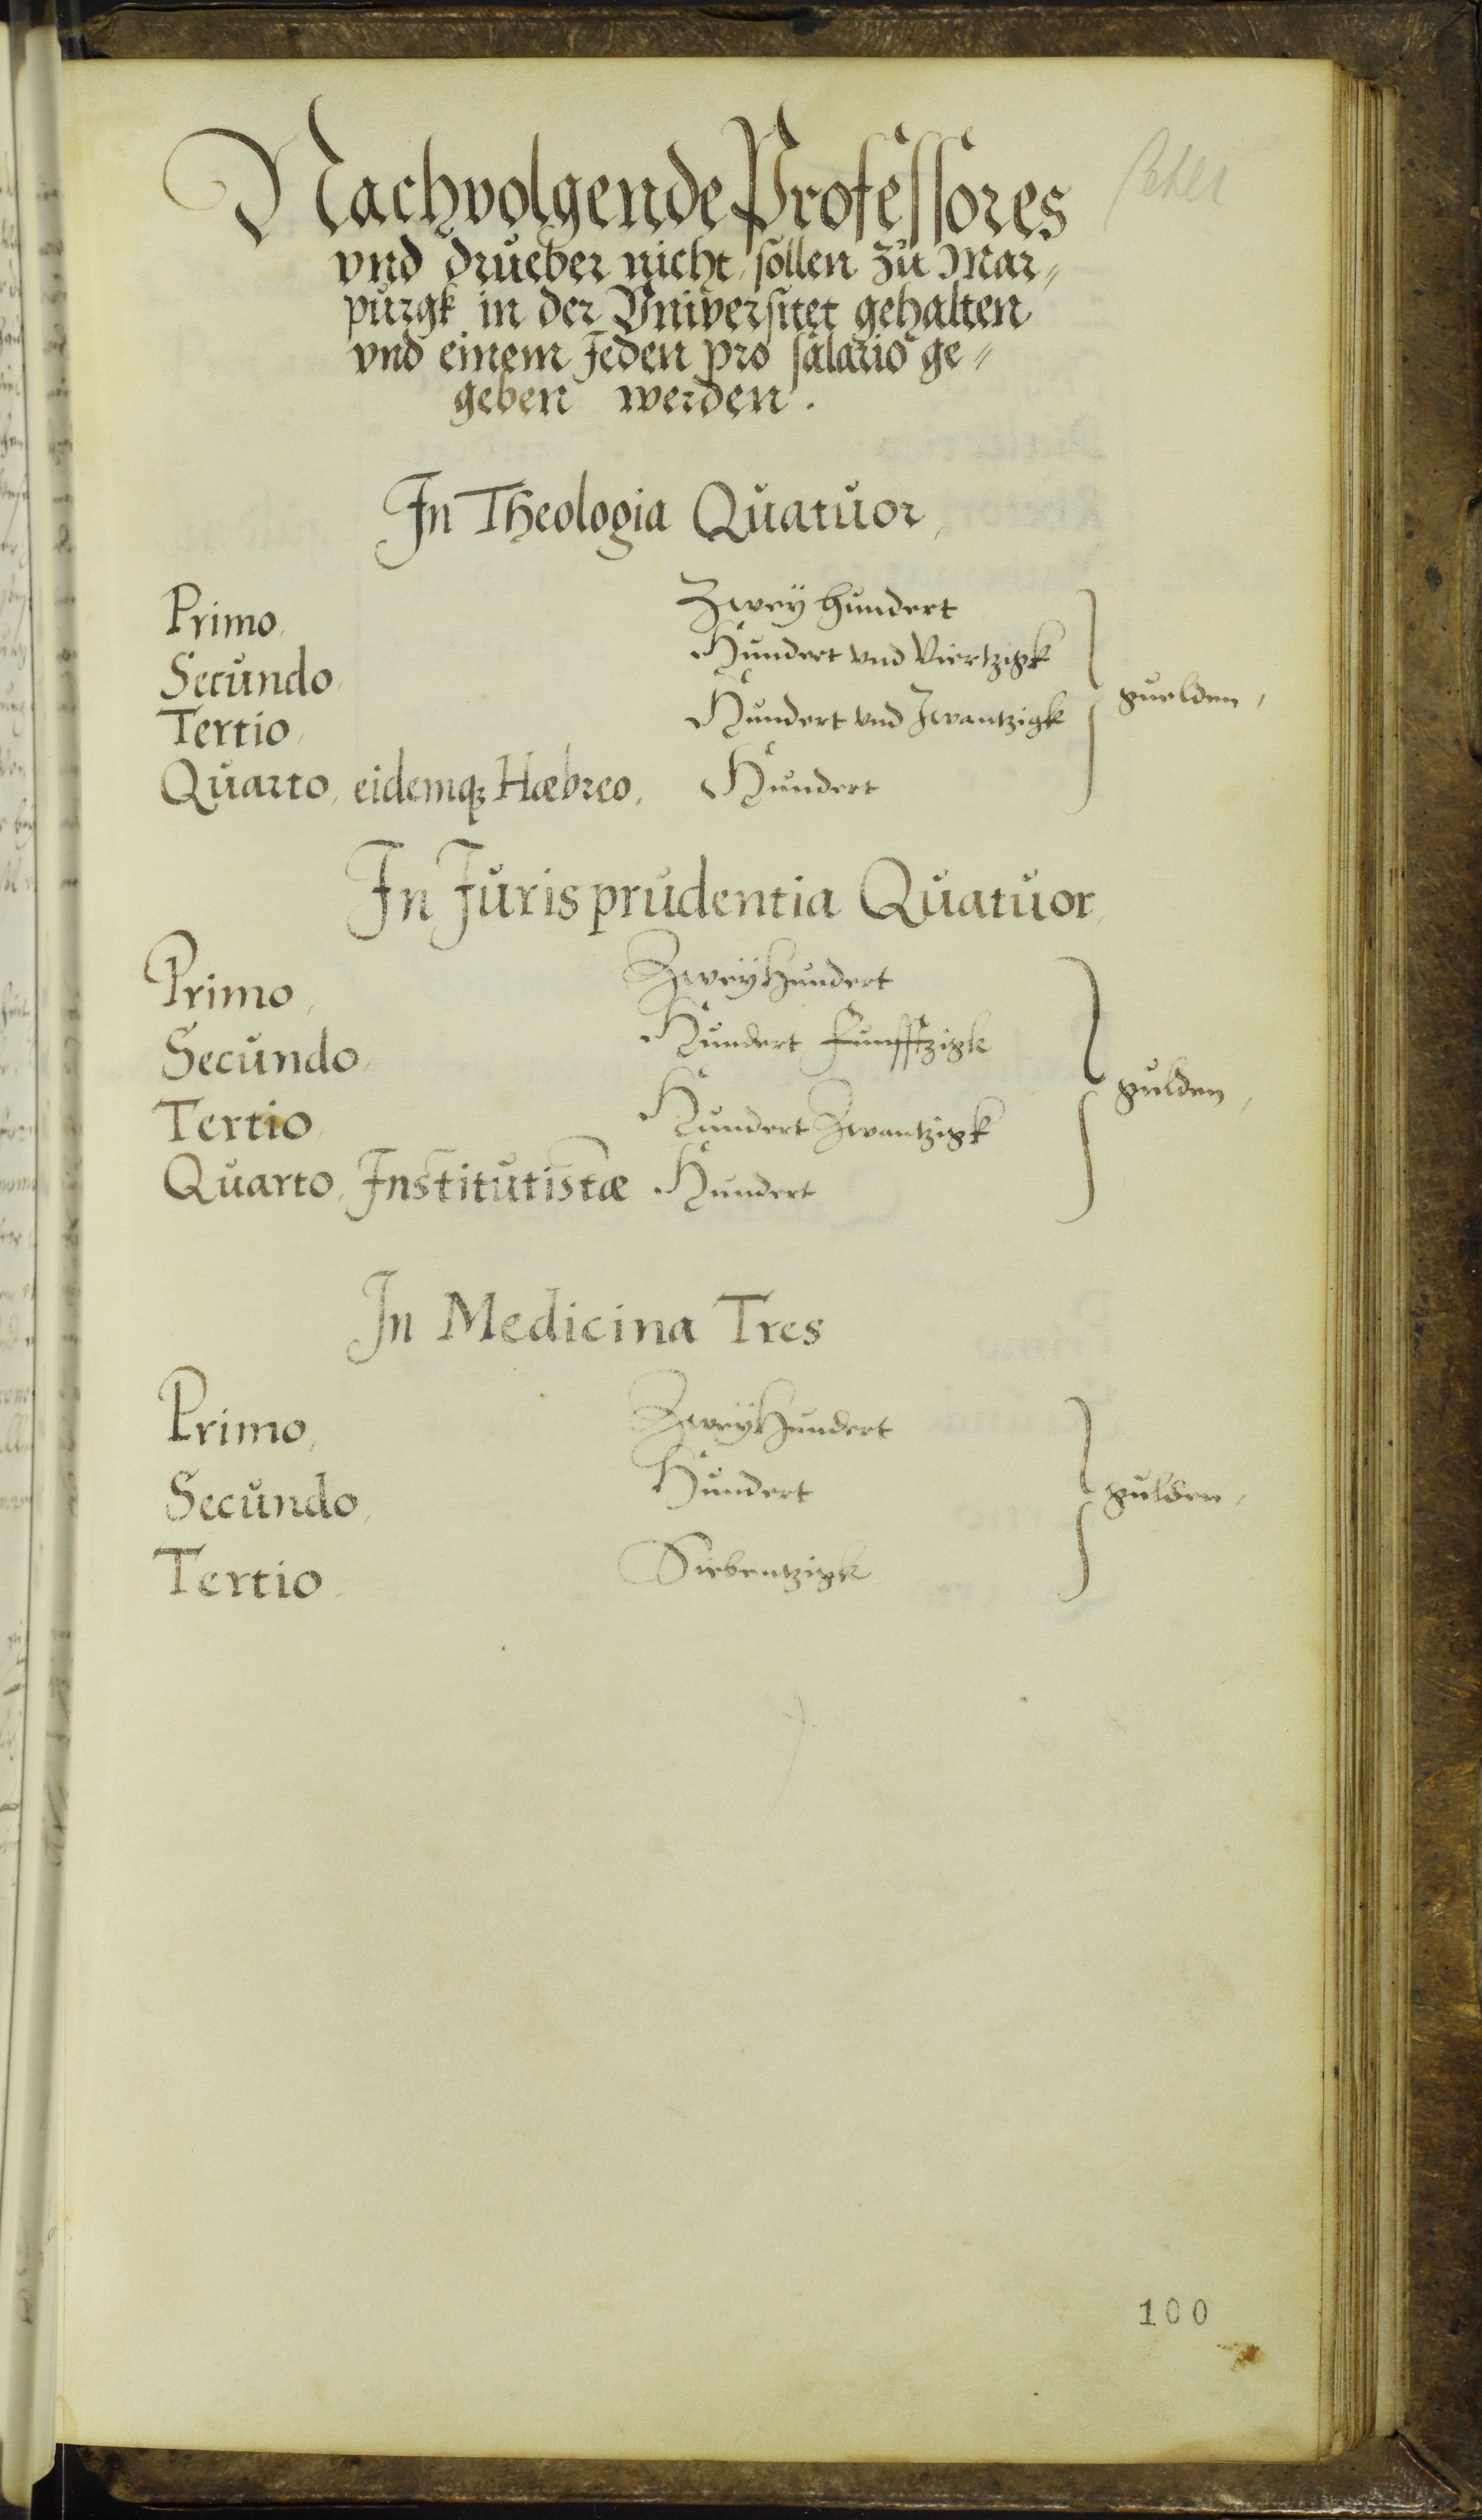 Nachvolgende Professores
vnd drueber nicht, sollen zu Mar⸗
purgk in der Vniversitet gehalten
vnd einem Jeden pro salario ge⸗
geben werden.
In Theologia Quatuor,
Primo, Zwey hundert
Secundo, Hundert vnd Viertzigk
guelden,
Tertio, Hundert vnd Zwantzigk
Quarto, eidemq; Hæbreo, Hundert
In Jurisprudentia Quatuor,
Primo, Zwey Hundert
Secundo, Hundert Funfftzigk
gulden,
Tertio, Hundert Zwantzigk
Quarto, Institutistæ Hundert
In Medicina Tres
Primo, Zwey Hundert
Secundo, Hundert
gulden,
Tertio, Siebentzigk
100